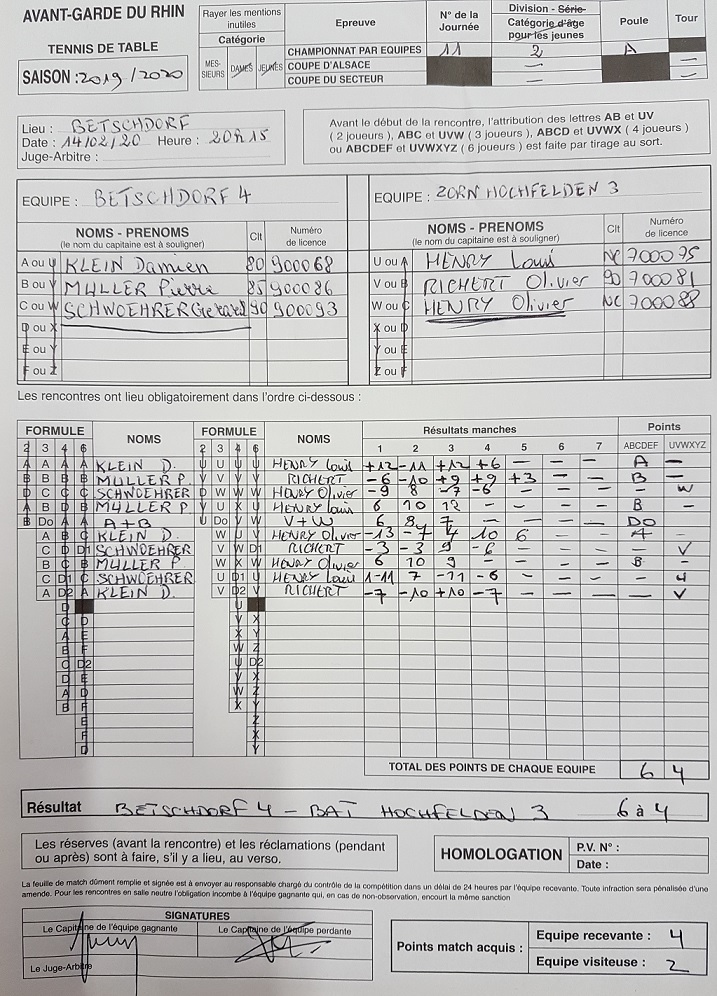 AVANT-GARDE DU RHIN
TENNIS DE TABLE
SAISON : 2019/2020
Rayer les mentions inutiles
Catégorie
MES-SIEURS DAMES JEUNES
Epreuve N° de la Journée Division - Série- Catégorie d'âge pour les jeunes Poule Tour
CHAMPIONNAT PAR EQUIPES 11 2 A
COUPE D'ALSACE — —
COUPE DU SECTEUR — —
Lieu : BETSCHDORF
Date : 14/02/20 Heure : 20h15
Juge-Arbitre :
Avant le début de la rencontre, l'attribution des lettres AB et UV
( 2 joueurs ), ABC et UVW ( 3 joueurs ), ABCD et UVWX ( 4 joueurs )
ou ABCDEF et UVWXYZ ( 6 joueurs ) est faite par tirage au sort.
EQUIPE : BETSCHDORF 4
NOMS - PRENOMS Clt Numéro de licence
(le nom du capitaine est à souligner)
A ou U KLEIN Damien 80 900068
B ou V MULLER Pierre 85 900086
C ou W SCHWOEHRER Gerard 90 900093
D ou X
E ou Y
F ou Z
EQUIPE : ZORN HOCHFELDEN 3
NOMS - PRENOMS Clt Numéro de licence
(le nom du capitaine est à souligner)
U ou A HENRY Louis NC 700075
V ou B RICHERT Olivier 90 700081
W ou C HENRY Olivier NC 700088
X ou D
Y ou E
Z ou F
Les rencontres ont lieu obligatoirement dans l'ordre ci-dessous :
FORMULE NOMS FORMULE NOMS Résultats manches Points
2 3 4 6 2 3 4 6 1 2 3 4 5 6 7 ABCDEF UVWXYZ
A A A A KLEIN D. U U U U HENRY Louis +12 -11 +12 +6 — — — A —
B B B B MULLER P. V V V V RICHERT -6 -10 +9 +9 +3 — — B —
D C C C SCHWOEHRER D W W W HENRY Olivier -9 8 -7 -6 — — — — W
A B D B MULLER P V U X U HENRY Louis 6 10 12 — — — — B —
B Do A A A+B U Do V W V+W 6 8 7 — — — — DO
A B C KLEIN D. W U V HENRY Olivier -13 -7 4 10 6 — — A —
C D D1 SCHWOEHRER V W D1 RICHERT -3 -3 9 -6 — — — — V
B C B MULLER P. W X W HENRY Olivier 6 10 9 — — — — B —
C D1 C SCHWOEHRER U D1 U HENRY Louis -11 7 -11 -6 — — — — U
A D2 A KLEIN D. V D2 V RICHERT -7 -10 +10 -7 — — — — V
D U
C D V X
A E X Y
B F W Z
C D2 U D2
D E V X
A D W Z
B F X Y
E Z
F X
D Y
TOTAL DES POINTS DE CHAQUE EQUIPE 6 4
Résultat BETSCHDORF 4 - BAT HOCHFELDEN 3 6 à 4
Les réserves (avant la rencontre) et les réclamations (pendant
ou après) sont à faire, s'il y a lieu, au verso.
HOMOLOGATION
P.V. N° :
Date :
La feuille de match dûment remplie et signée est à envoyer au responsable chargé du contrôle de la compétition dans un délai de 24 heures par l'équipe recevante. Toute infraction sera pénalisée d'une
amende. Pour les rencontres en salle neutre l'obligation incombe à l'équipe gagnante qui, en cas de non-observation, encourt la même sanction
SIGNATURES
Le Capitaine de l'équipe gagnante Le Capitaine de l'équipe perdante
Le Juge-Arbitre
Points match acquis :
Equipe recevante : 4
Equipe visiteuse : 2